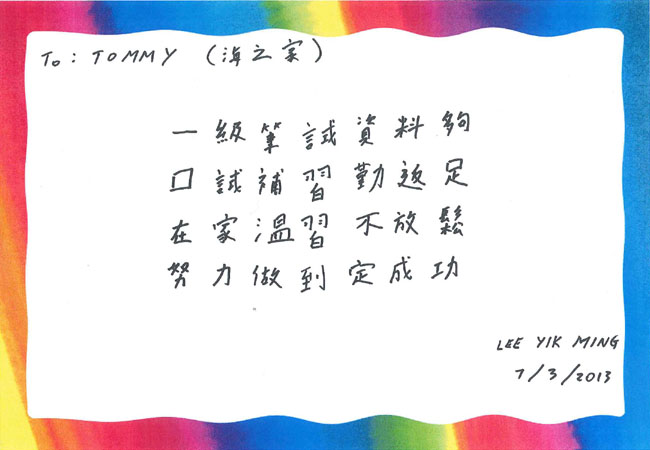 To: TOMMY (海之家)
一級筆試資料夠
口試補習勤返足
在家溫習不放鬆
努力做到定成功
LEE YIK MING
7/3/2013